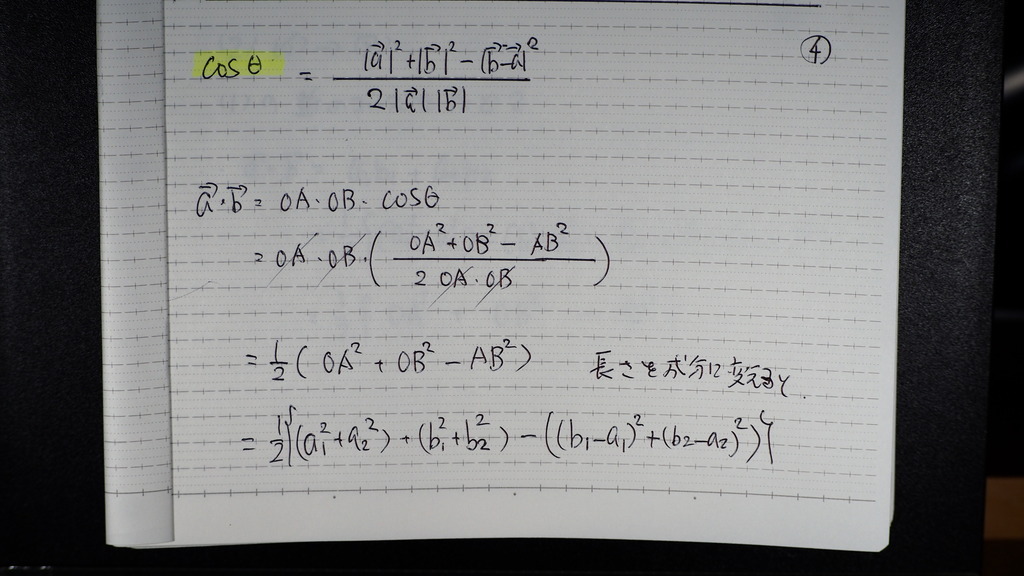 ④
cosθ = (|a⃗|² + |b⃗|² − |b⃗−a⃗|²) / (2|a⃗||b⃗|)
a⃗・b⃗ = OA・OB・cosθ
= OA・OB・( (OA² + OB² − AB²) / (2 OA・OB) )
= 1/2 ( OA² + OB² − AB² ) 長さを成分に変えると、
= 1/2 { (a₁² + a₂²) + (b₁² + b₂²) − ((b₁−a₁)² + (b₂−a₂)²) }